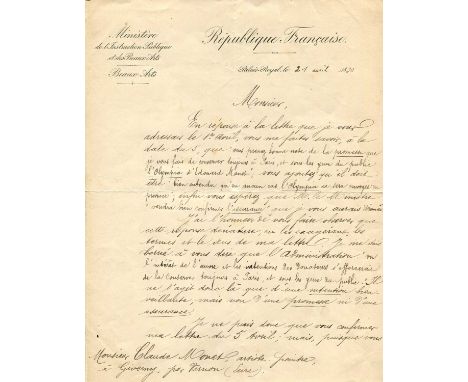 Ministère
de l'Instruction Publique
et des Beaux-Arts
Beaux-Arts
République Française.
Palais-Royal, le 24 avril 1890
Monsieur,
En réponse à la lettre que je vous
adressais le 1er Avril, vous me faites savoir, à la
date du 5, que vous prenez bonne note de la promesse que
je vous fais de conserver toujours à Paris, et sous les yeux du public
l'Olympia d'Edouard Manet; vous ajoutez qu'il doit
être bien entendu qu'en aucun cas l'Olympia ne sera envoyée en
province; enfin vous espérez que M. le Ministre
voudra bien confirmer l'assurance que je vous aurais donnée
J'ai l'honneur de vous faire observer que
cette réponse dénature, en les exagérant, les
termes et le sens de ma lettre. Je me suis
borné à vous dire que l'Administration
l'intérêt de l'œuvre et les intentions des Donateurs s'efforcerait
de la conserver toujours à Paris et sous les yeux du public. Il
ne s'agit donc là que d'une intention bien
veillante, mais non d'une promesse ni d'une
assurance.
Je ne puis donc que vous confirmer
ma lettre du 5 Avril, mais, puisque vous
Monsieur Claude Monet, artiste peintre,
à Giverny, par Vernon (Eure).